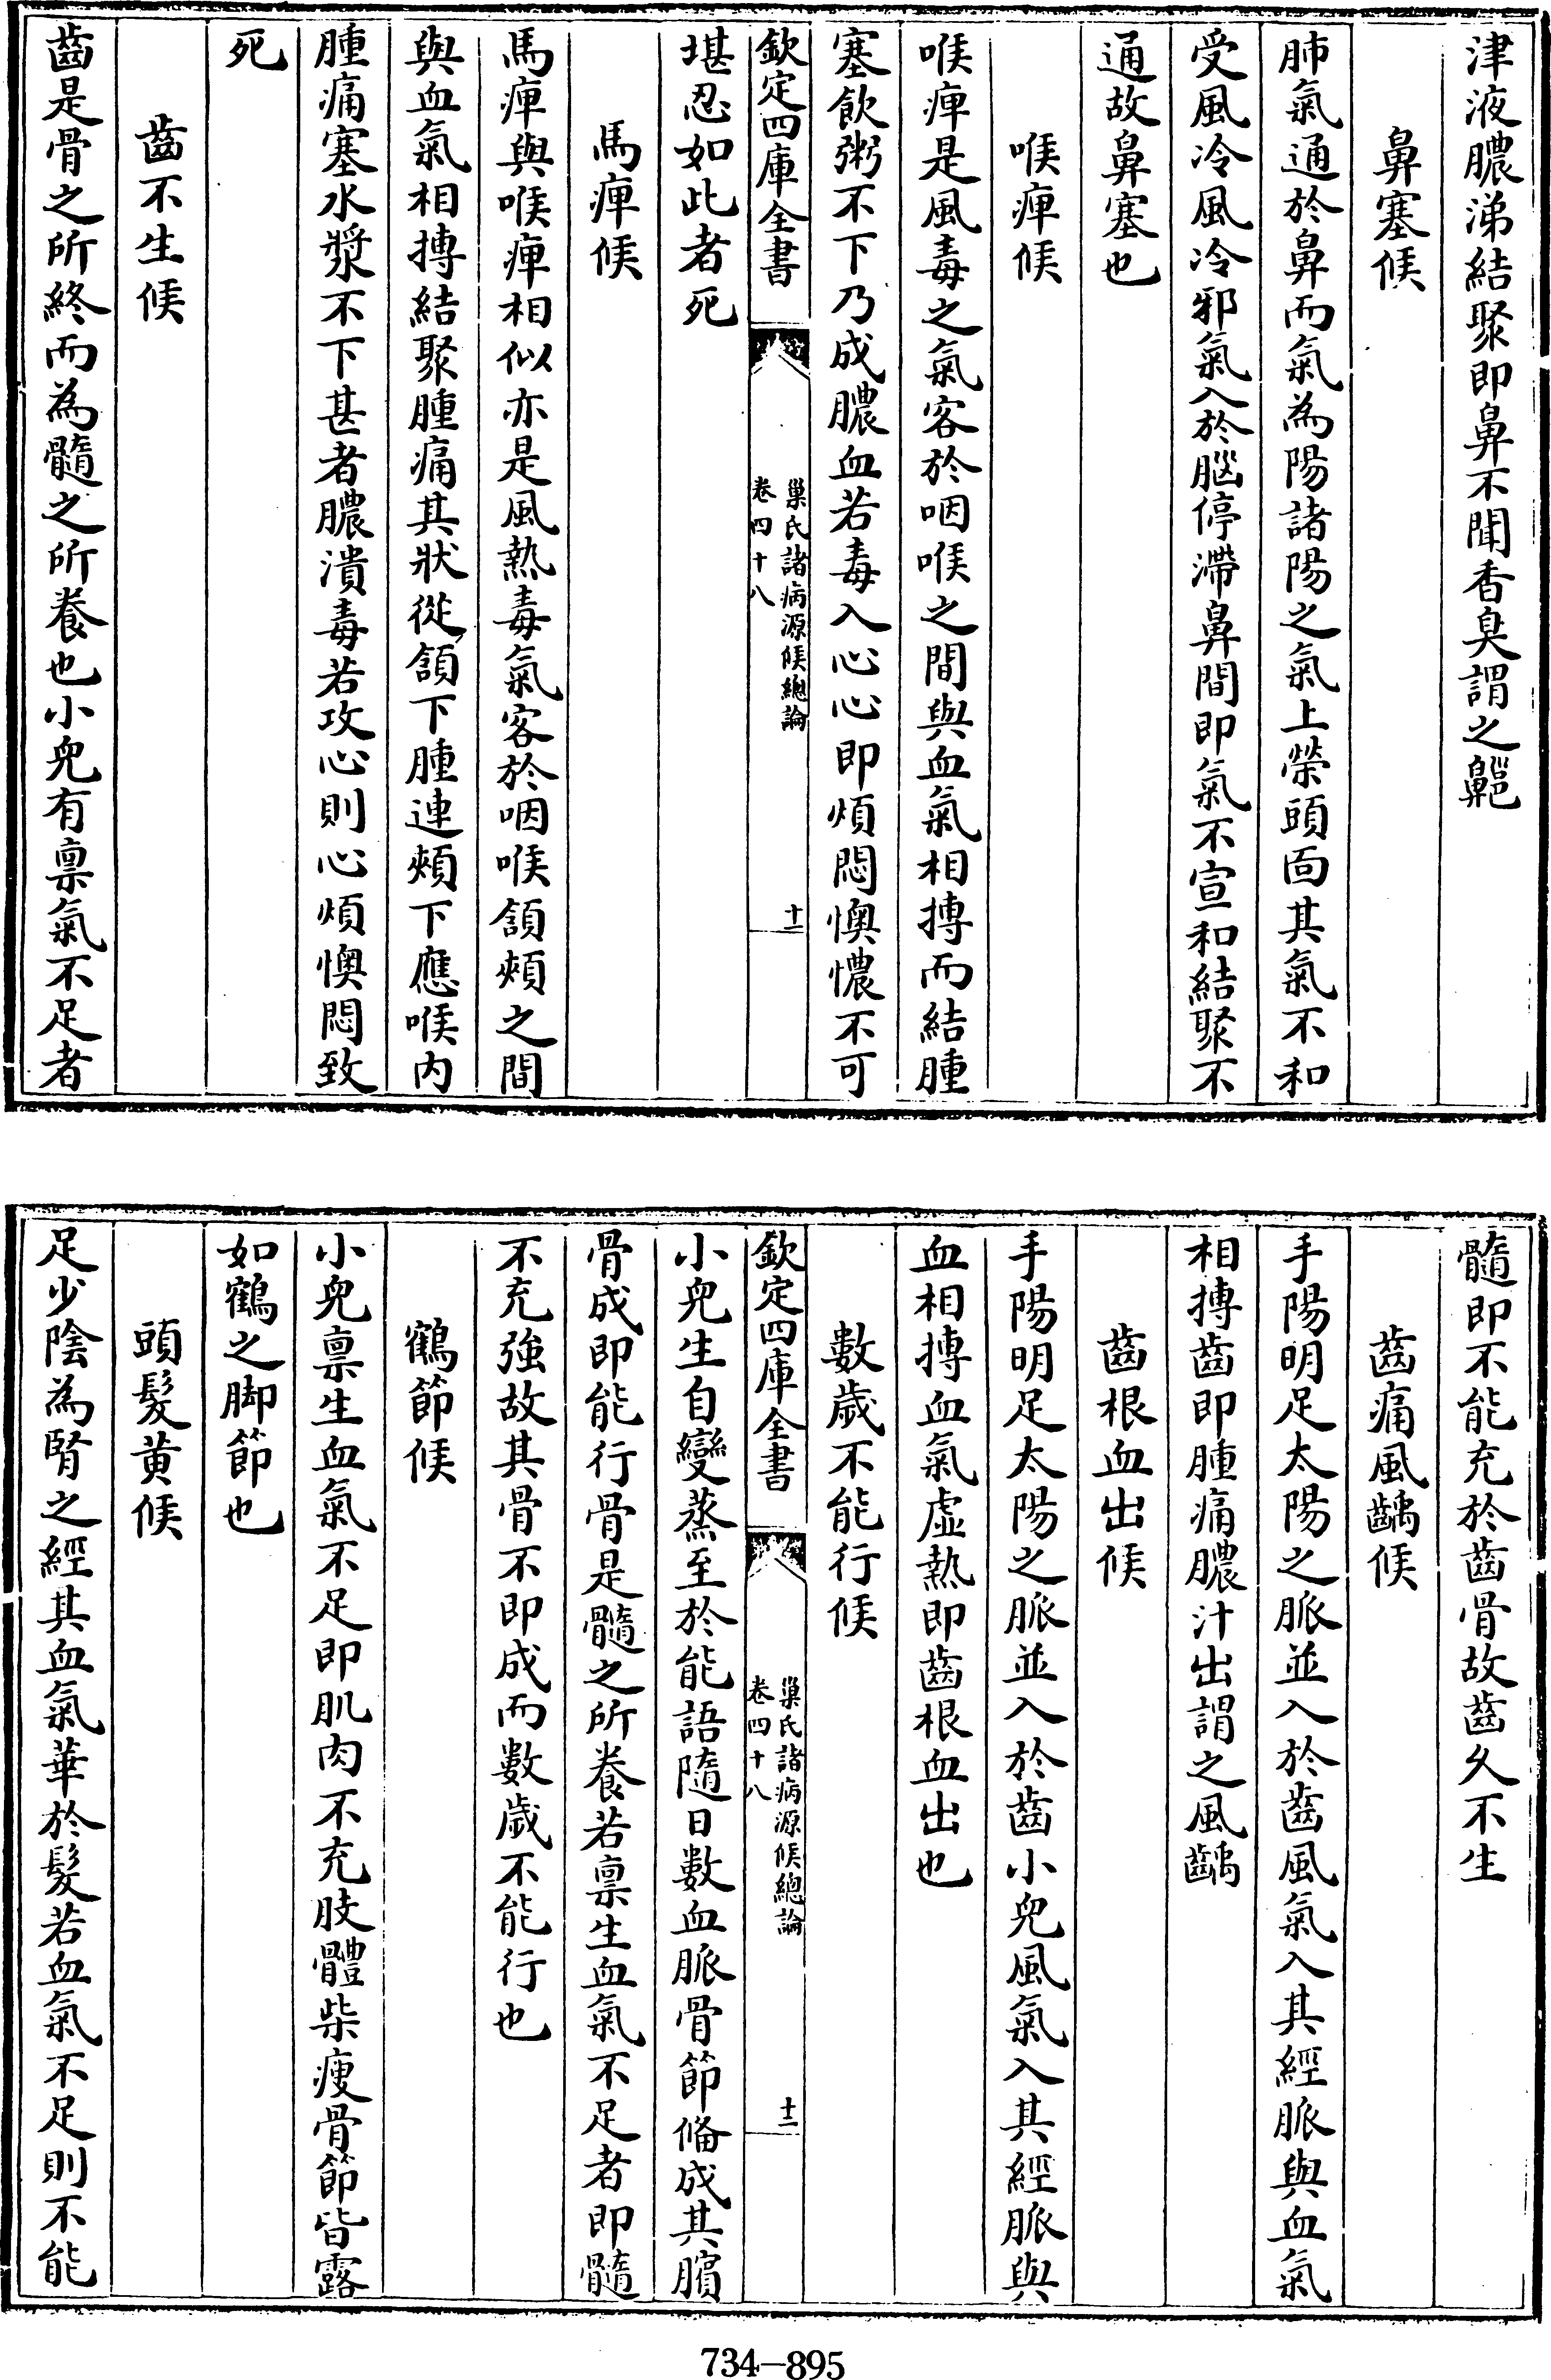 津液膿涕結聚即鼻不聞香臭謂之齆
鼻塞候
肺氣通於鼻而氣為陽諸陽之氣上榮頭面其氣不和
受風冷風冷邪氣入於腦停滯鼻間即氣不宣和結聚不
通故鼻塞也
喉痺候
喉痺是風毒之氣客於咽喉之間與血氣相搏而結腫
塞飲粥不下乃成膿血若毒入心心即煩悶懊憹不可
欽定四庫全書
巢氏諸病源候總論
卷四十八
十一
堪忍如此者死
馬痺候
馬痺與喉痺相似亦是風熱毒氣客於咽喉頷頰之間
與血氣相搏結聚腫痛其狀從頷下腫連頰下應喉內
腫痛塞水漿不下甚者膿潰毒若攻心則心煩懊悶致
死
齒不生候
齒是骨之所終而為髓之所養也小兒有禀氣不足者
髓即不能充於齒骨故齒久不生
齒痛風齲候
手陽明足太陽之脈並入於齒風氣入其經脈與血氣
相搏齒即腫痛膿汁出謂之風齲
齒根血出候
手陽明足太陽之脈並入於齒小兒風氣入其經脈與
血相搏血氣虛熱即齒根血出也
數歲不能行候
欽定四庫全書
巢氏諸病源候總論
卷四十八
十二
小兒生自變蒸至於能語隨日數血脈骨節備成其臏
骨成即能行骨是髓之所養若禀生血氣不足者即髓
不充強故其骨不即成而數歲不能行也
鶴節候
小兒禀生血氣不足即肌肉不充肢體柴瘦骨節皆露
如鶴之脚節也
頭髮黃候
足少陰為腎之經其血氣華於髮若血氣不足則不能
734-895